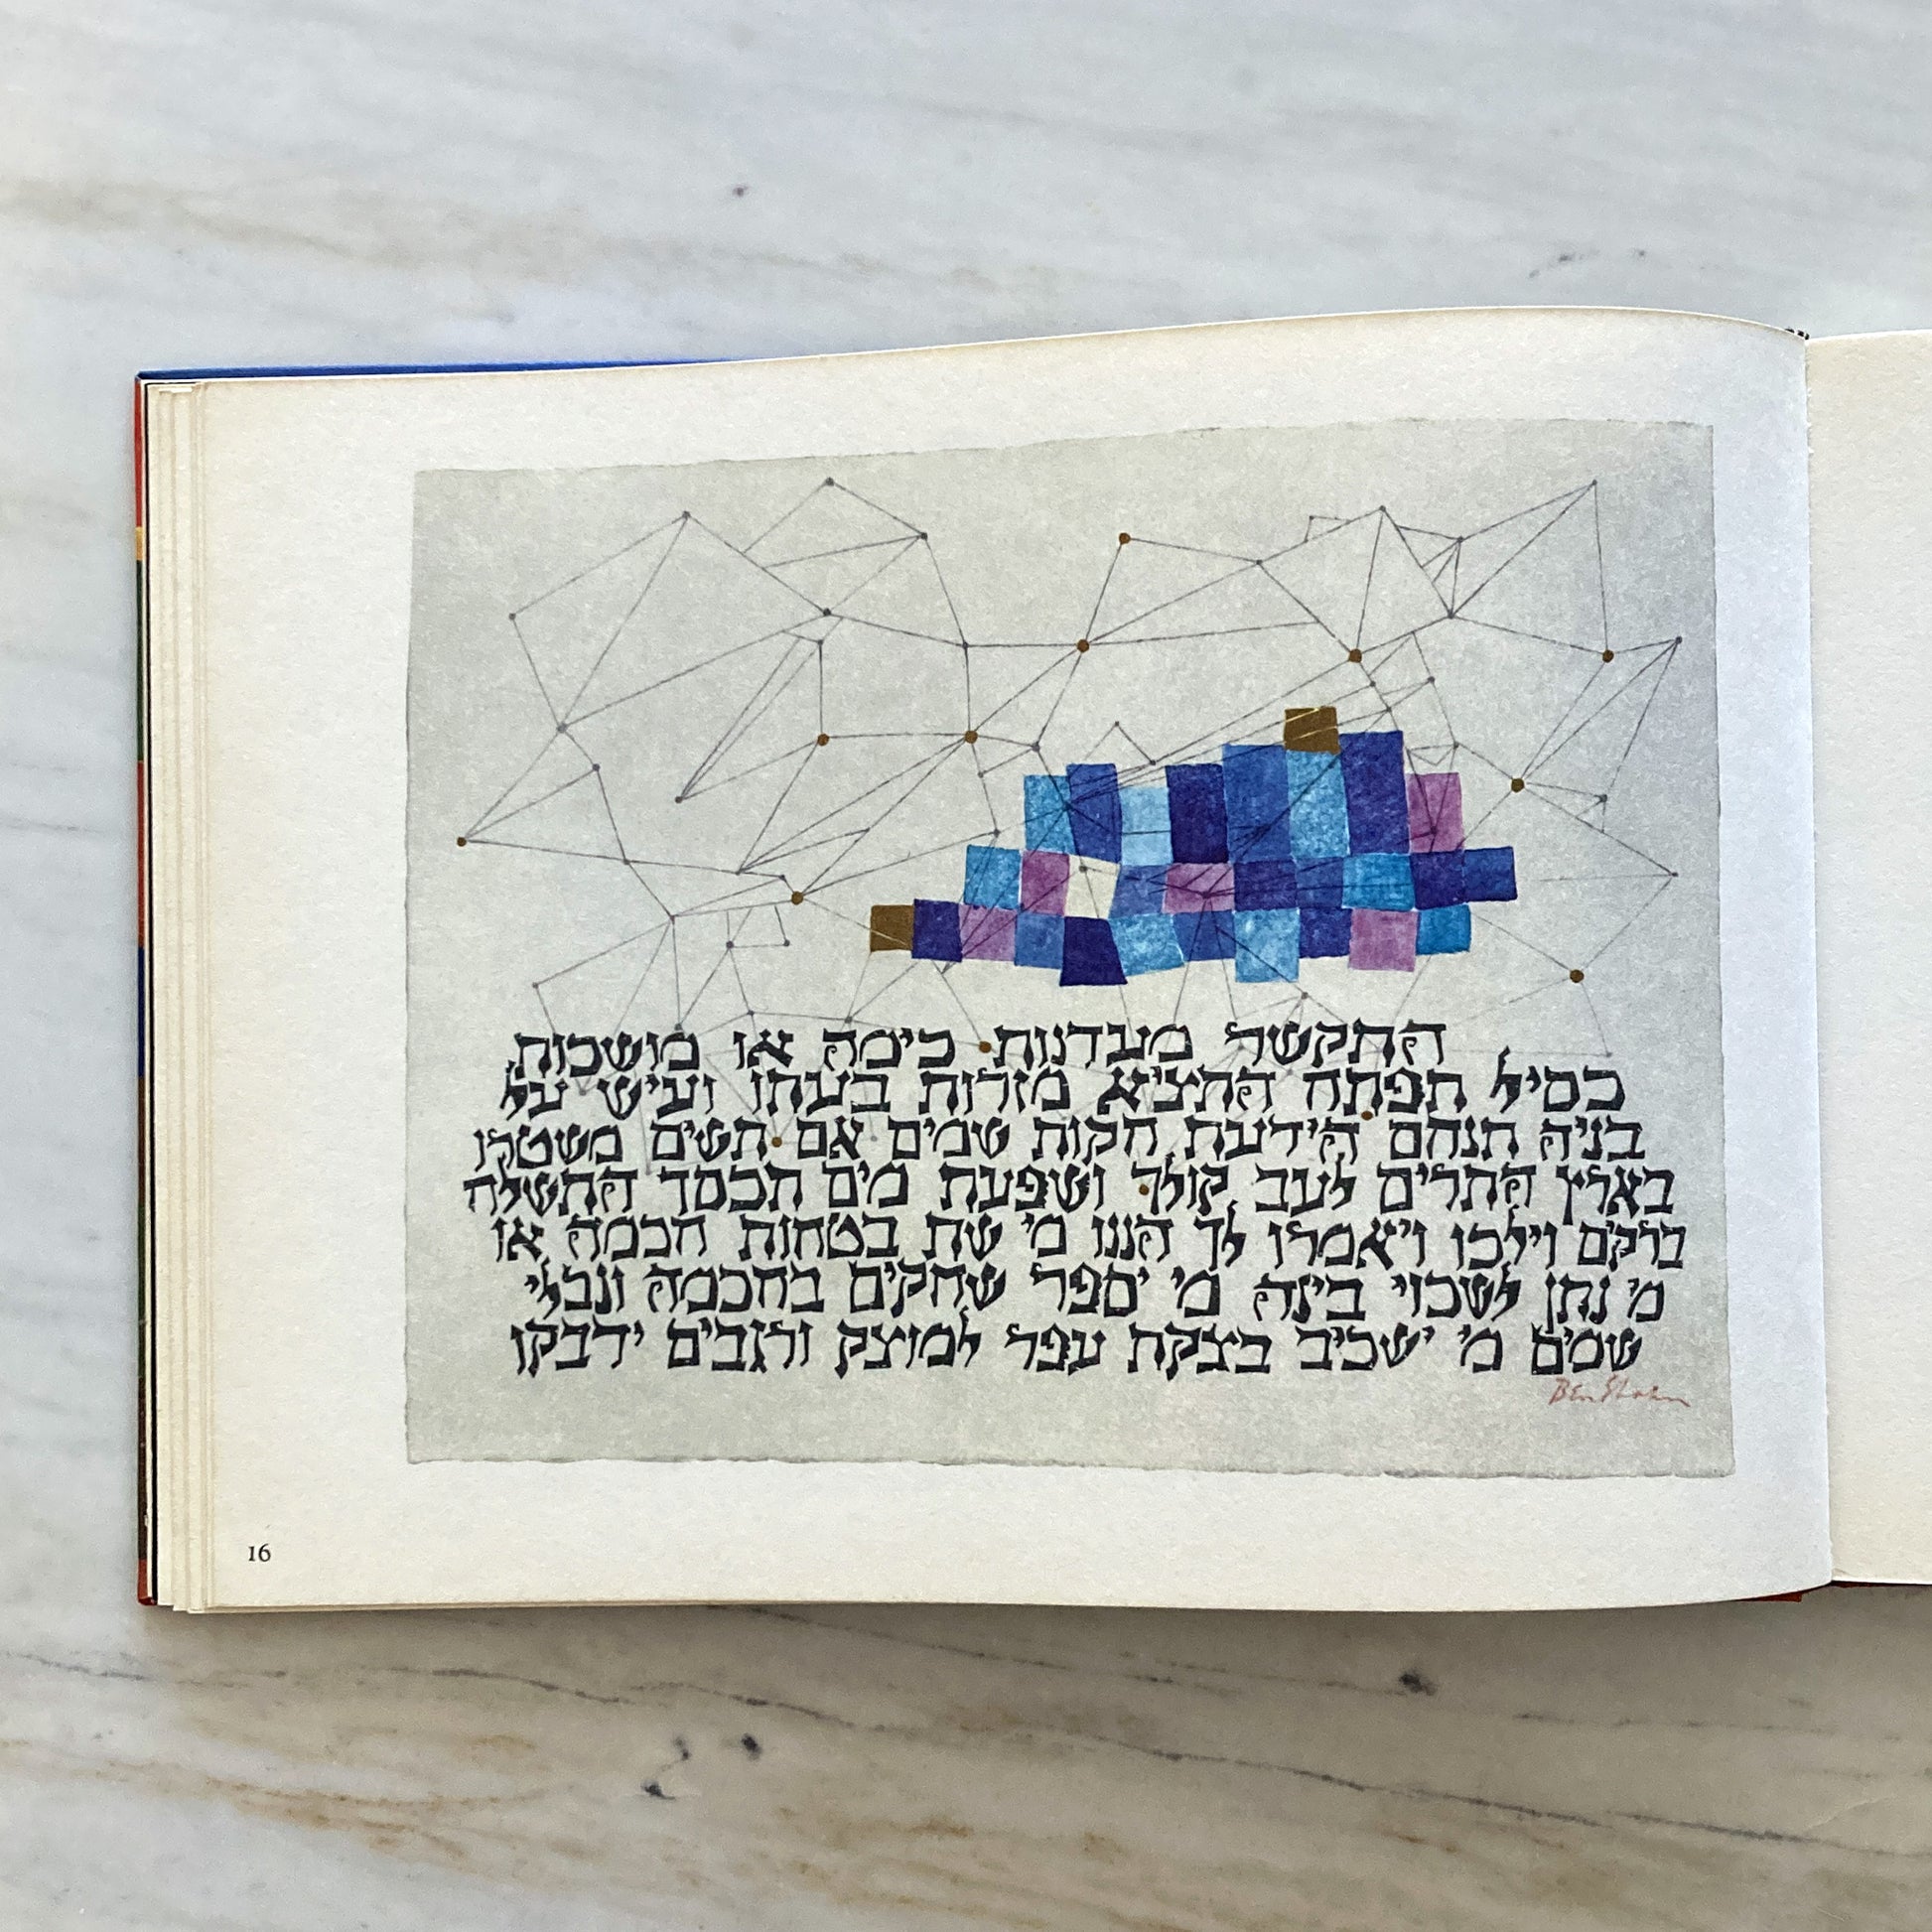 התקשר מעדנות כימה או מושכות
כסיל תפתח התציא מזרות בעתו ועיש על
בניה תנחם הידעת חקות שמים אם תשים משטרו
בארץ התרים לעב קולך ושפעת מים תכסך התשלח
ברקם וילכו ויאמרו לך הננו מי שת בטחות חכמה או
מי נתן לשכוי בינה מי יספר שחקים בחכמה ונבלי
שמים מי ישכיב בצקת עפר למוצק ורגבים ידבקו
Ben Shahn
16